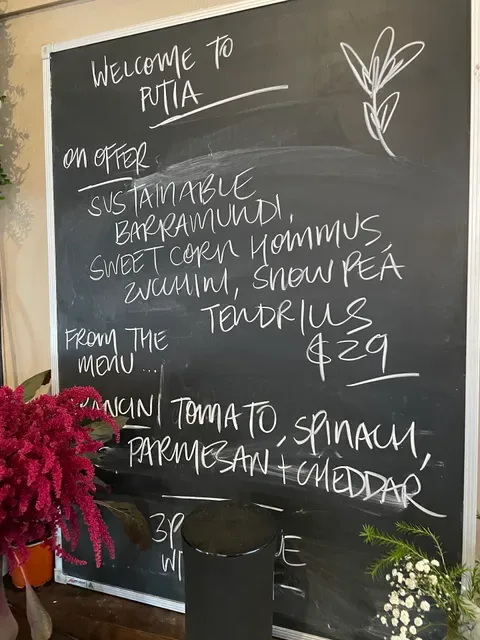 WELCOME TO
PUTIA
ON OFFER
SUSTAINABLE
BARRAMUNDI,
SWEET CORN HOMMUS,
ZUCHINI, SNOW PEA
TENDRILS
$29
FROM THE
MENU...
TOMATO, SPINACH,
PARMESAN + CHEDDAR